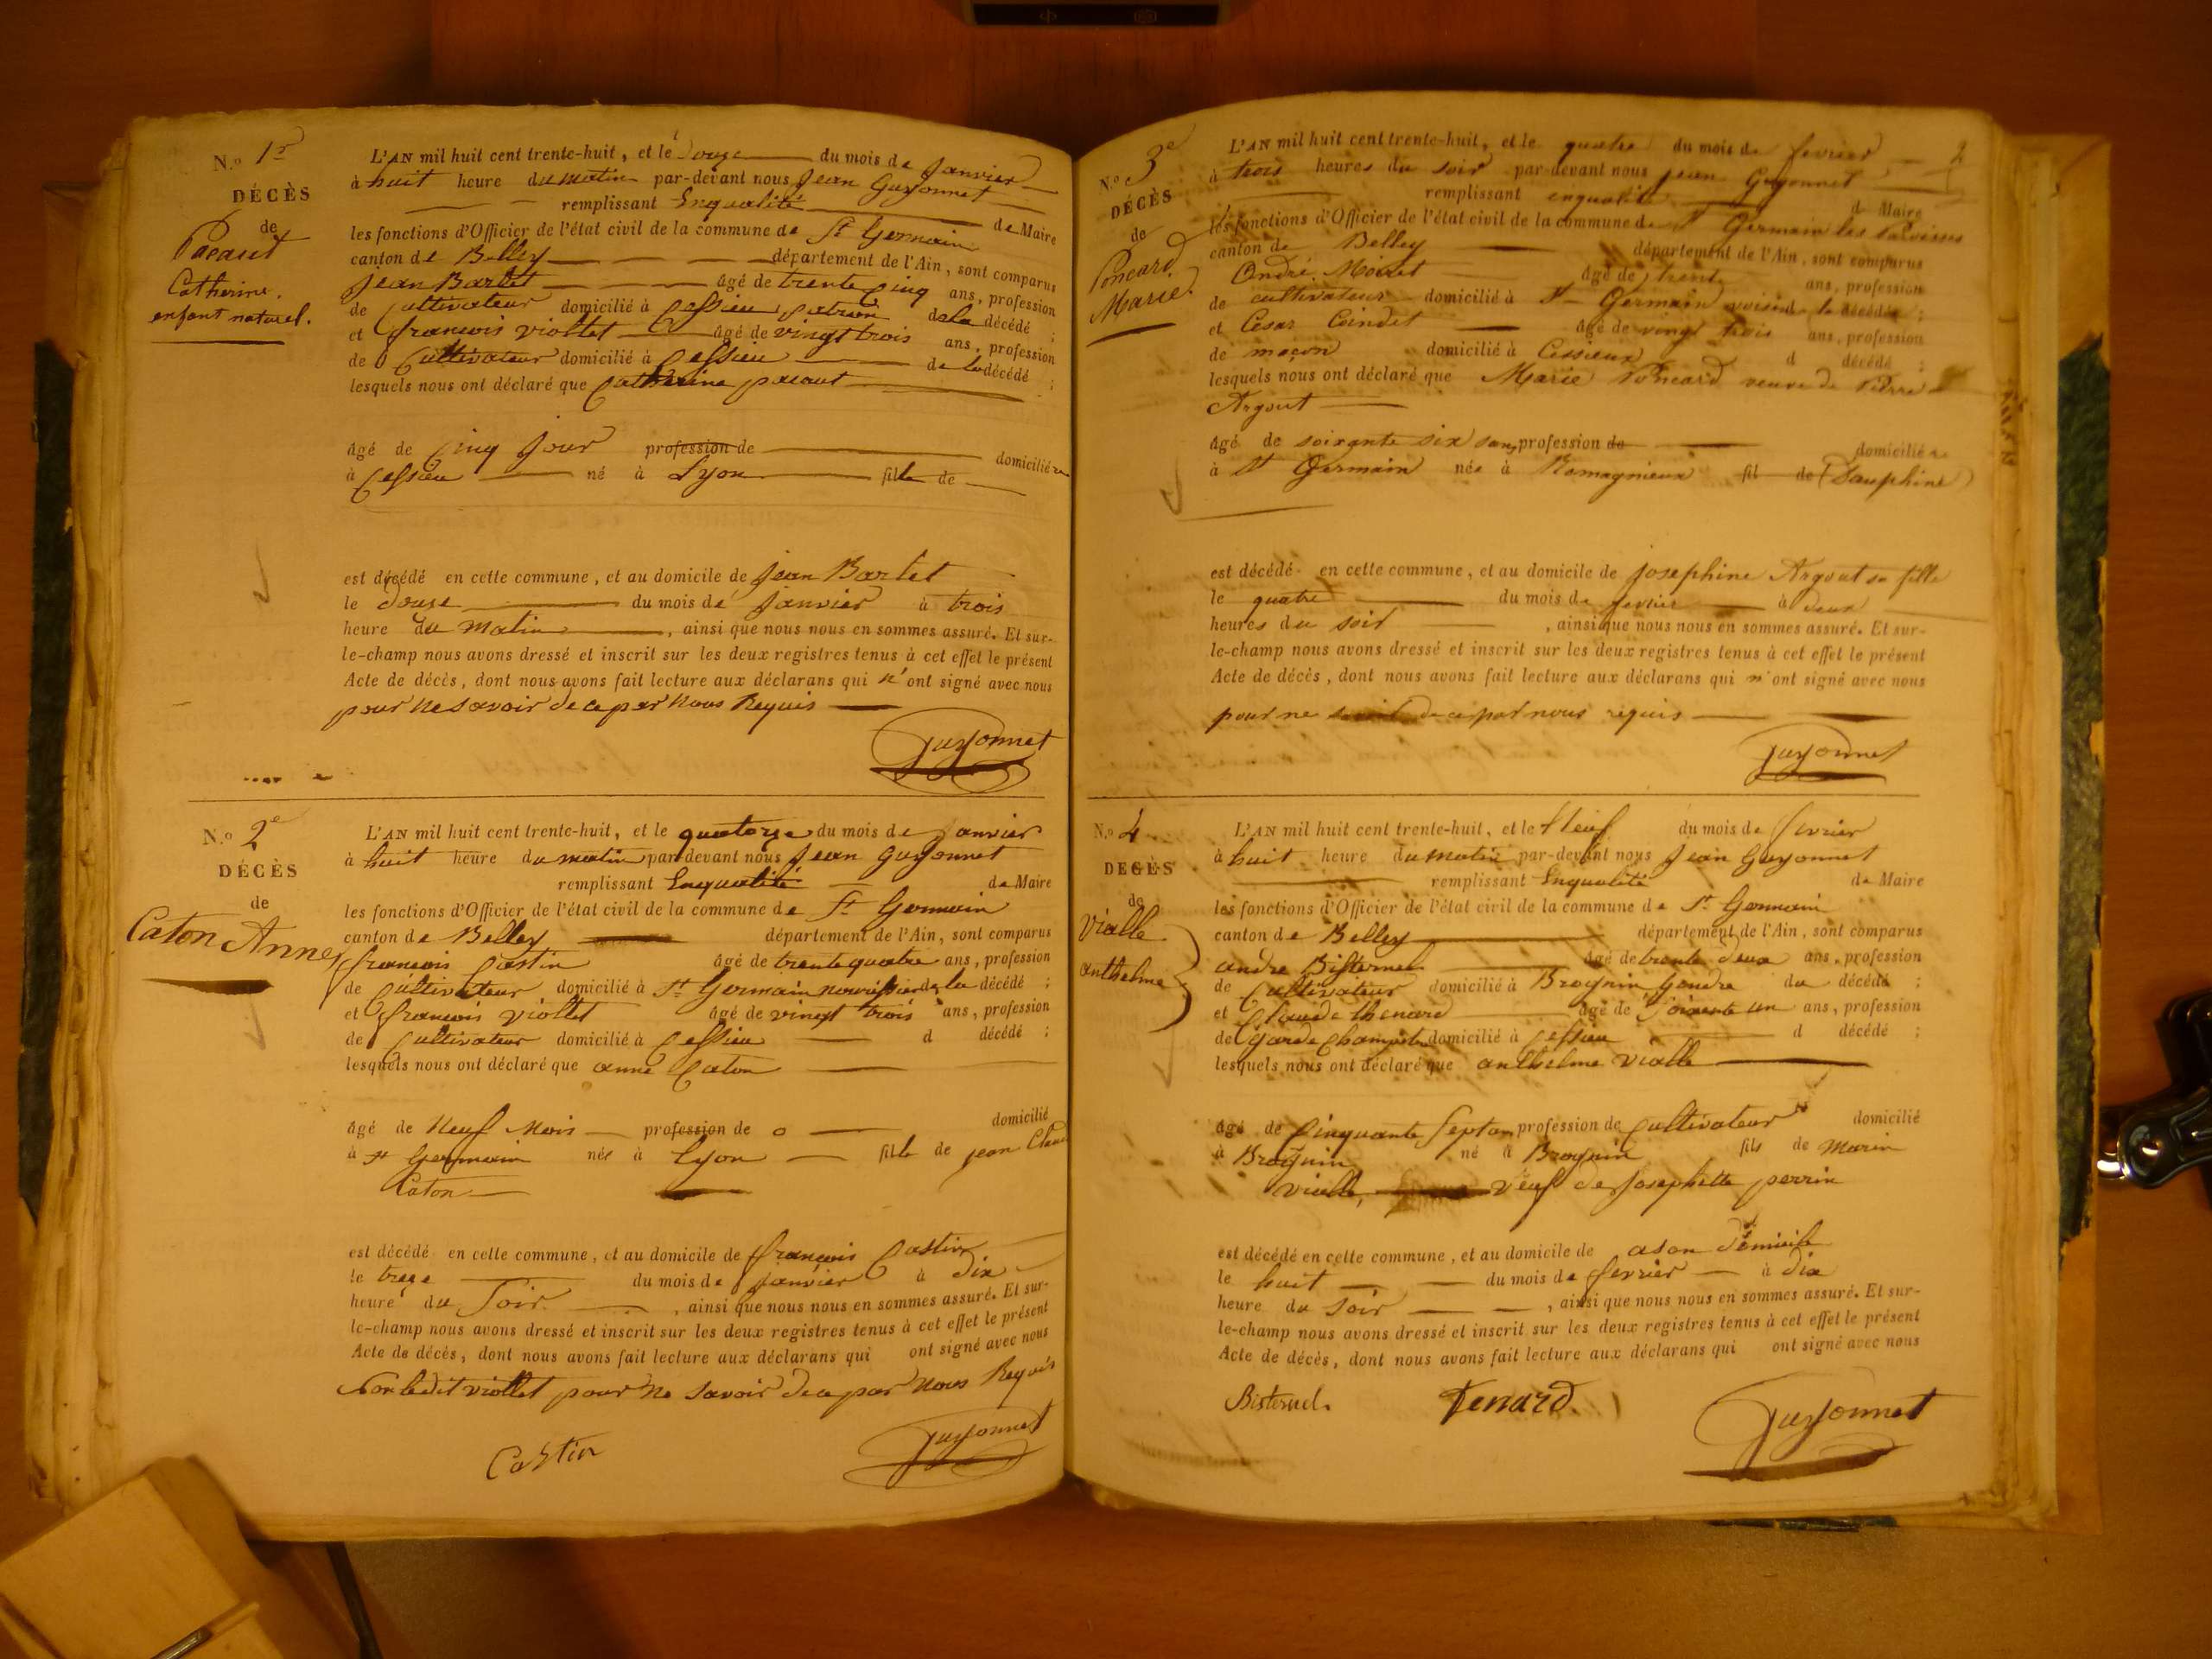 N.º 1er
DÉCÈS
de
Pacaut
Catherine.
enfant naturel.
L'AN mil huit cent trente-huit, et le Douze du mois de Janvier
à huit heure du matin par-devant nous Jean Guyonnet
remplissant Enqualité de Maire
les fonctions d'Officier de l'état civil de la commune de St Germain
canton de Belley département de l'Ain, sont comparus
Jean Barlet âgé de trente Cinq ans, profession
de Cultivateur domicilié à Cessieu patron de la décédé ;
et francois viollet âgé de vingt trois ans, profession
de Cultivateur domicilié à Cessieu de la décédé ;
lesquels nous ont déclaré que Catherine pacaut
âgé de Cinq Jour profession de domicilié
à Cessieu né à Lyon fille de
est décédé en cette commune, et au domicile de Jean Barlet
le douse du mois de Janvier à trois
heure du Matin , ainsi que nous nous en sommes assuré. Et sur-
le-champ nous avons dressé et inscrit sur les deux registres tenus à cet effet le présent
Acte de décès, dont nous avons fait lecture aux déclarans qui n'ont signé avec nous
pour ne savoir de ce par Nous Requis
Guyonnet
N.º 2e
DÉCÈS
de
Caton Anne
L'AN mil huit cent trente-huit, et le quatorze du mois de Janvier
à huit heure du matin par-devant nous Jean Guyonnet
remplissant Enqualité de Maire
les fonctions d'Officier de l'état civil de la commune de St Germain
canton de Belley département de l'Ain, sont comparus
francois Castin âgé de trente quatre ans, profession
de Cultivateur domicilié à St Germain nourissier de la décédé ;
et francois viollet âgé de vingt trois ans, profession
de Cultivateur domicilié à Cessieu d décédé ;
lesquels nous ont déclaré que anne Caton
âgé de Neuf Mois profession de domicilié
à St Germain née à Lyon fille de jean Claude
Caton
est décédé en cette commune, et au domicile de francois Castin
le treze du mois de janvier à dix
heure du Soir , ainsi que nous nous en sommes assuré. Et sur-
le-champ nous avons dressé et inscrit sur les deux registres tenus à cet effet le présent
Acte de décès, dont nous avons fait lecture aux déclarans qui ont signé avec nous
Non ledit viollet pour ne savoir de ce par Nous Requis
Castin Guyonnet
2
N.º 3e
DÉCÈS
de
Poncard
Marie
L'AN mil huit cent trente-huit, et le quatre du mois de fevrier
à trois heures du soir par-devant nous jean Guyonnet
remplissant enqualité d Maire
les fonctions d'Officier de l'état civil de la commune de St Germain les Paroisses
canton de Belley département de l'Ain, sont comparus
André Moiret âgé de trente ans, profession
de cultivateur domicilié à St Germain voisin de la décédée ;
et César Coindet âgé de vingt trois ans, profession
de maçon domicilié à Cessieux d décédé ;
lesquels nous ont déclaré que Marie Poncard veuve de Pierre
Argout
âgé de soixante six ans, profession de domicilié
à St Germain née à Romagnieux fil de (Dauphiné)
est décédé en cette commune, et au domicile de josephine Argout sa fille
le quatre du mois de fevrier à deux
heures du soir , ainsi que nous nous en sommes assuré. Et sur-
le-champ nous avons dressé et inscrit sur les deux registres tenus à cet effet le présent
Acte de décès, dont nous avons fait lecture aux déclarans qui n'ont signé avec nous
pour ne savoir de ce par nous requis
Guyonnet
N.º 4
DECÈS
de
Vialle
anthelme
L'AN mil huit cent trente-huit, et le Neuf du mois de fevrier
à huit heure du matin par-devant nous Jean Guyonnet
remplissant Enqualité de Maire
les fonctions d'Officier de l'état civil de la commune de St Germain
canton de Belley département de l'Ain, sont comparus
andre Bisternel âgé de trente deux ans, profession
de Cultivateur domicilié à Brognin Gendre du décédé ;
et Claude thenard âgé de Soixente un ans, profession
de Garde Champetre domicilié à Cessieu d décédé ;
lesquels nous ont déclaré que anthelme vialle
âgé de Cinquante Sept an profession de Cultivateur domicilié
à Brognin né à Brognin fils de Marin
vialle, veuf de Josephette perrin
est décédé en cette commune, et au domicile de a son domicile
le huit du mois de fevrier à dix
heure du Soir , ainsi que nous nous en sommes assuré. Et sur-
le-champ nous avons dressé et inscrit sur les deux registres tenus à cet effet le présent
Acte de décès, dont nous avons fait lecture aux déclarans qui ont signé avec nous
Bisternel. Tenard. Guyonnet